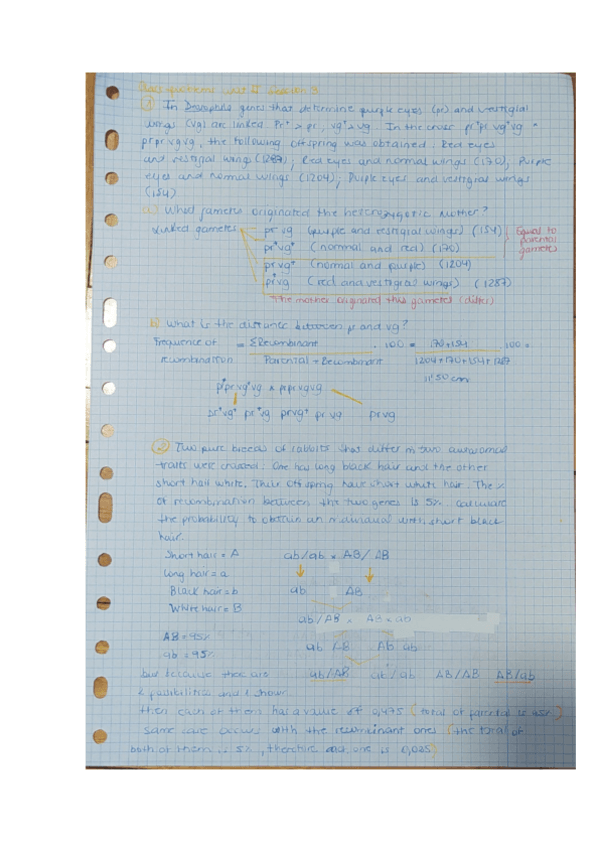 1 In Drosophila genes that determine purple eyes (pr) and vestigial
wings (vg) are linked. Pr⁺ > pr, vg⁺ > vg. In the cross pr⁺pr vg⁺vg ×
prpr vgvg, the following offspring was obtained: Red eyes
and vestigial wings (1287); Red eyes and normal wings (170); Purple
eyes and normal wings (1204); Purple eyes and vestigial wings
(154)
a) What gametes originated the heterozygotic mother?
Linked gametes pr vg (purple and vestigial wings) (154)
pr⁺vg⁺ (normal and red) (170)
Equal to
parental
gametes
pr vg⁺ (normal and purple) (1204)
pr⁺vg (red and vestigial wings) (1287)
The mother originated this gametes (differ)
b) What is the distance between pr and vg?
Frequence of recombination = ΣRecombinant / Parental + Recombinant · 100 = 170+154 / 1204+170+154+1287 · 100 =
11'50 cm
pr⁺pr vg⁺vg × prpr vgvg
pr⁺vg⁺ pr⁺vg prvg⁺ pr vg prvg
2 Two pure breeds of rabbits that differ in two autosomal
traits were crossed. One has long black hair and the other
short hair white. Their offspring have short white hair. The %
of recombination between the two genes is 5%. Calculate
the probability to obtain an individual with short black
hair.
Short hair = A ab/ab × AB/AB
Long hair = a
Black hair = b ab AB
White hair = B
ab/AB × AB × ab
AB = 95%
ab AB AB ab
ab = 95%
but because there are ab/AB ab/ab AB/AB AB/ab
2 possibilities and 1 shown.
then each of them has a value of 0,475 (total of parental is 95%)
same case occurs with the recombinant ones (the total of
both of them is 5%, therefore each one is 0,025)